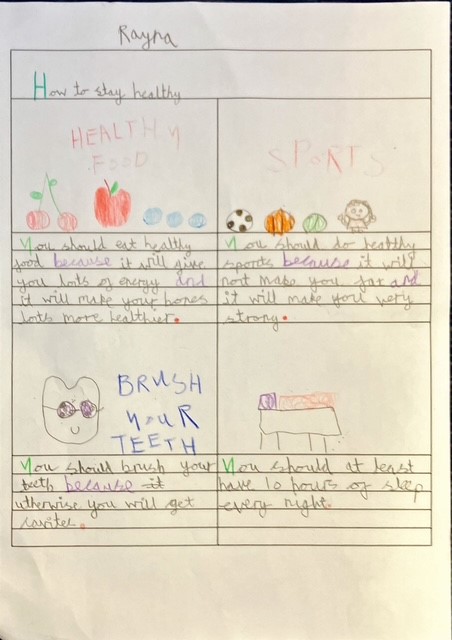 Rayna
How to stay healthy
HEALTHY
FOOD
You should eat healthy
food because it will give
you lots of energy and
it will make your bones
lots more healthier.
SPORTS
You should do healthy
sports because it will
nont make you far and
it will make you very
strong.
BRUSH
YOUR
TEETH
You should brush your
teeth because it
utherwise you will get
cavites.
You should at least
have 10 hours of sleep
every night.